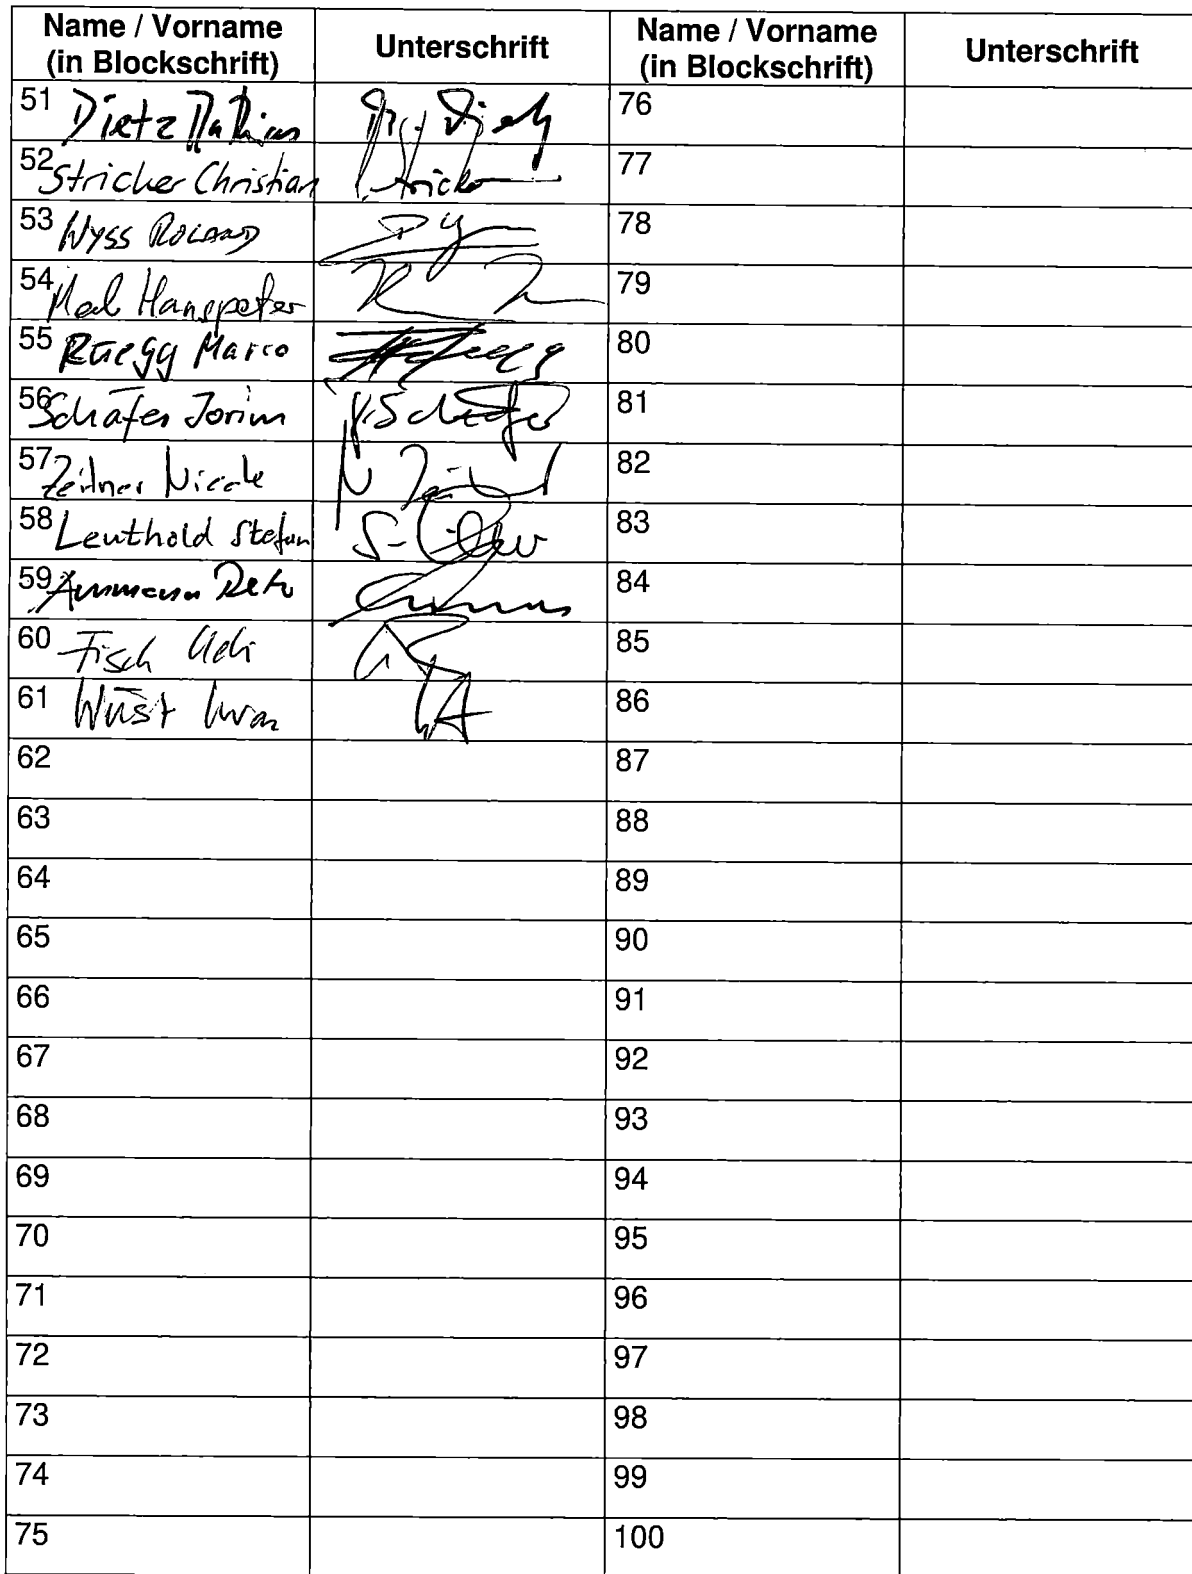 Name / Vorname
(in Blockschrift)
Unterschrift
Name / Vorname
(in Blockschrift)
Unterschrift
51 Dietz Mathias
76
52 Stricker Christian
77
53 Wyss ROLAND
78
54 Hanspeter
79
55 Rüegg Marco
80
56 Schäfer Jorim
81
57 Zeitner Nicole
82
58 Leuthold Stefan
83
59 Ammann Reto
84
60 Fisch Ueli
85
61 Wüst
86
62
87
63
88
64
89
65
90
66
91
67
92
68
93
69
94
70
95
71
96
72
97
73
98
74
99
75
100